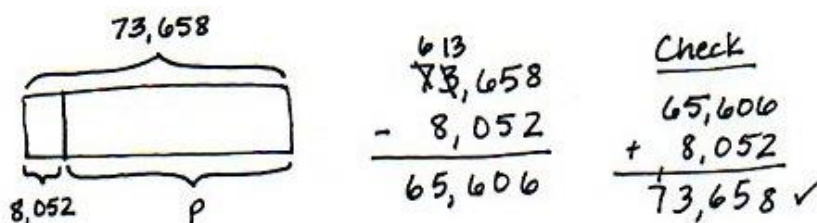 73,658
8,052 P
6 13
73,658
- 8,052
65,606
Check
65,606
+ 8,052
1
73,658 ✓